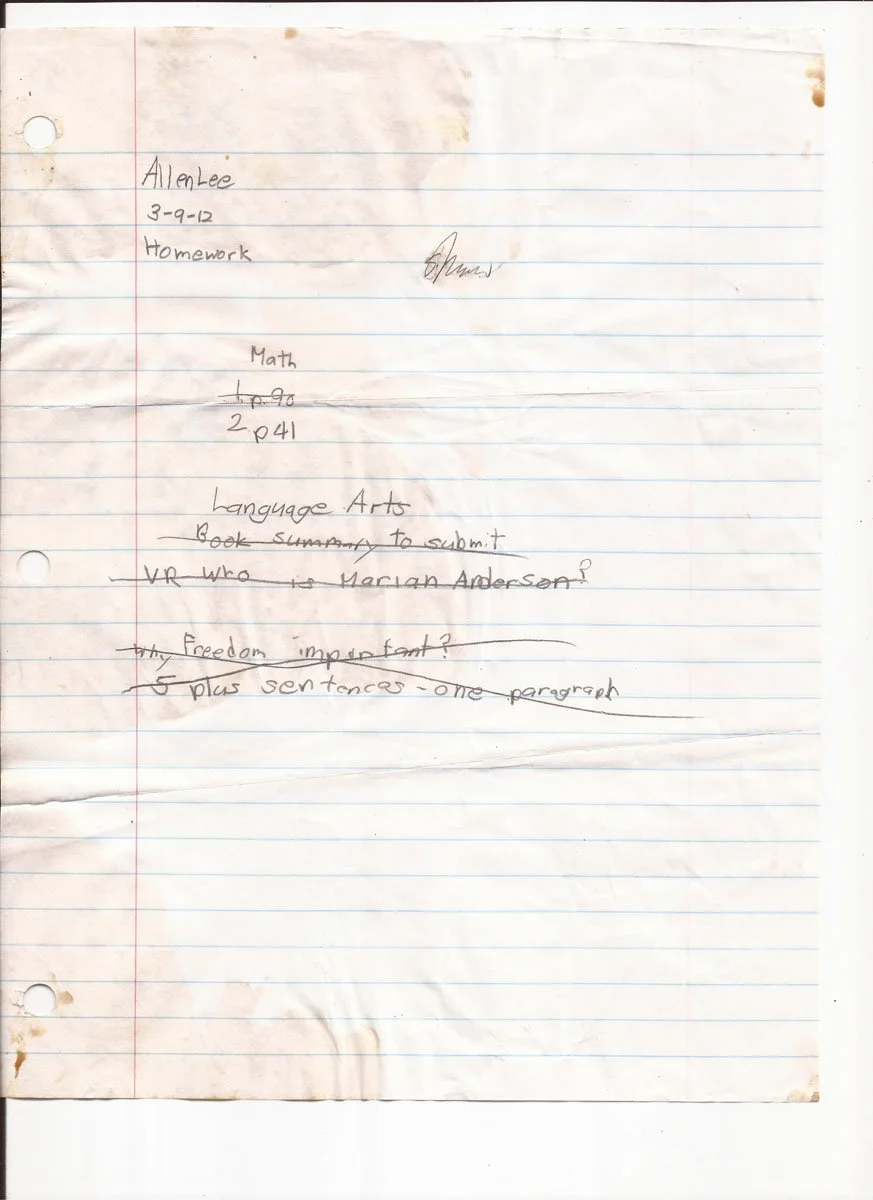 Allen Lee
3-9-12
Homework
Math
1. p. 90
2 p 41
Language Arts
Book summary to submit
VR Who is Marian Anderson?
Why Freedom important?
5 plus sentences - one paragraph